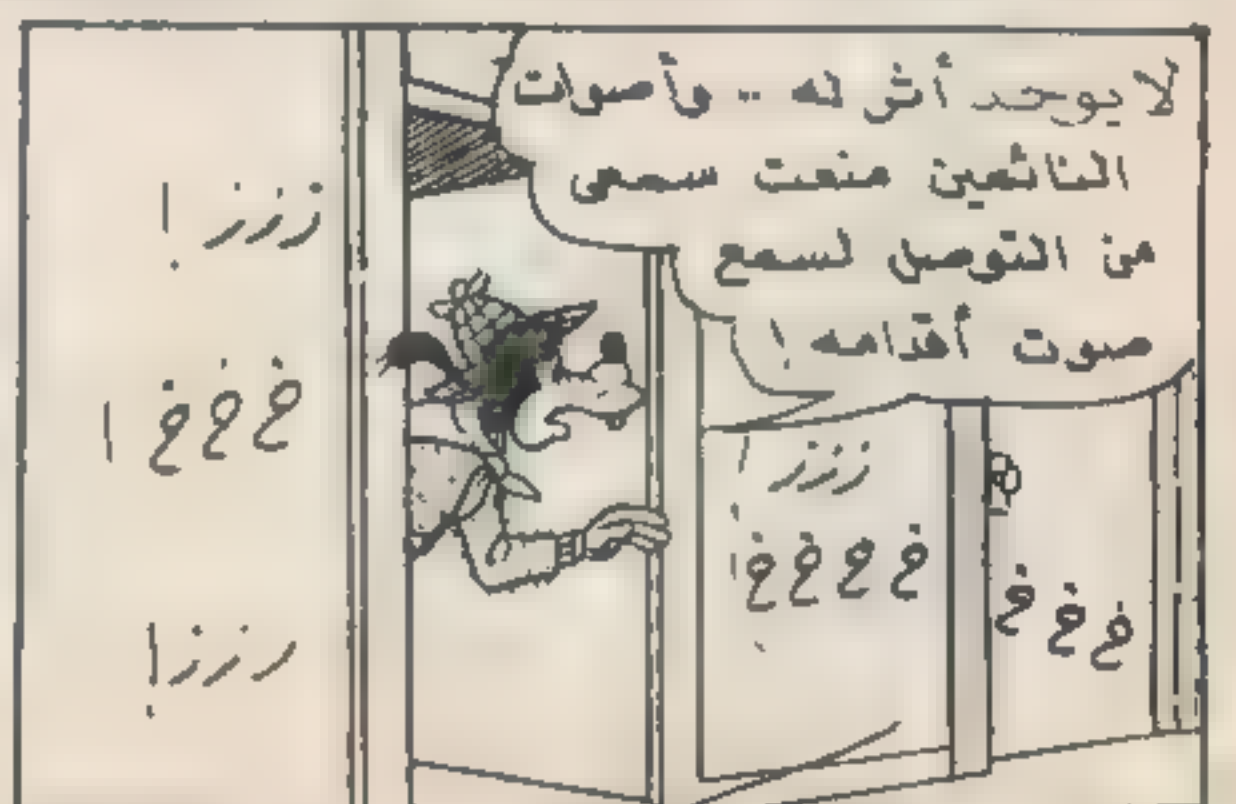 لا يوجد أثر له .. وأصوات
النائمين منعت سمعى
من التوصل لسمع
صوت أقدامه !
ززز !
خ خ خ !
ززز !
خ خ خ خ !
خ خ خ
ررزز !